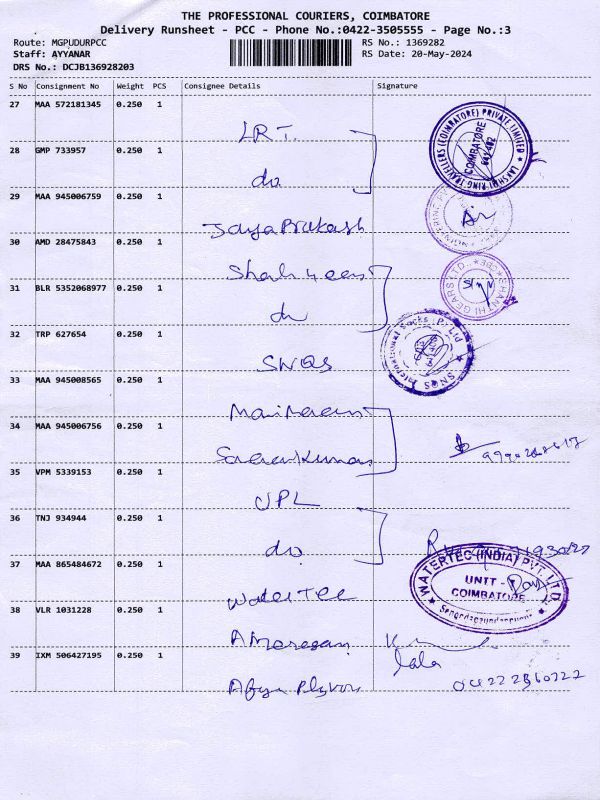 THE PROFESSIONAL COURIERS, COIMBATORE
Delivery Runsheet - PCC - Phone No.:0422-3505555 - Page No.:3
Route: MGPUDURPCC
RS No.: 1369282
Staff: AYYANAR
RS Date: 20-May-2024
DRS No.: DCJB136928203
S No Consignment No Weight PCS Consignee Details Signature
27 MAA 572181345 0.250 1
LRT.
LAKSHMI RING TRAVELLERS (COIMBATORE) PRIVATE LIMITED
COIMBATORE
641 402
28 GMP 733957 0.250 1
do
29 MAA 945006759 0.250 1
JayaPrakash
30 AMD 28475843 0.250 1
SHANTHI GEARS LTD.
31 BLR 5352068977 0.250 1
do
32 TRP 627654 0.250 1
SNQS
SNQS International Socks P. Ltd
33 MAA 945008565 0.250 1
34 MAA 945006756 0.250 1
SaravanKumar
35 VPM 5339153 0.250 1
UPL
36 TNJ 934944 0.250 1
do
37 MAA 865484672 0.250 1
WaterTec
WATERTEC (INDIA) PVT. LTD.
UNIT -
COIMBATORE
38 VLR 1031228 0.250 1
lala
39 IXM 506427195 0.250 1